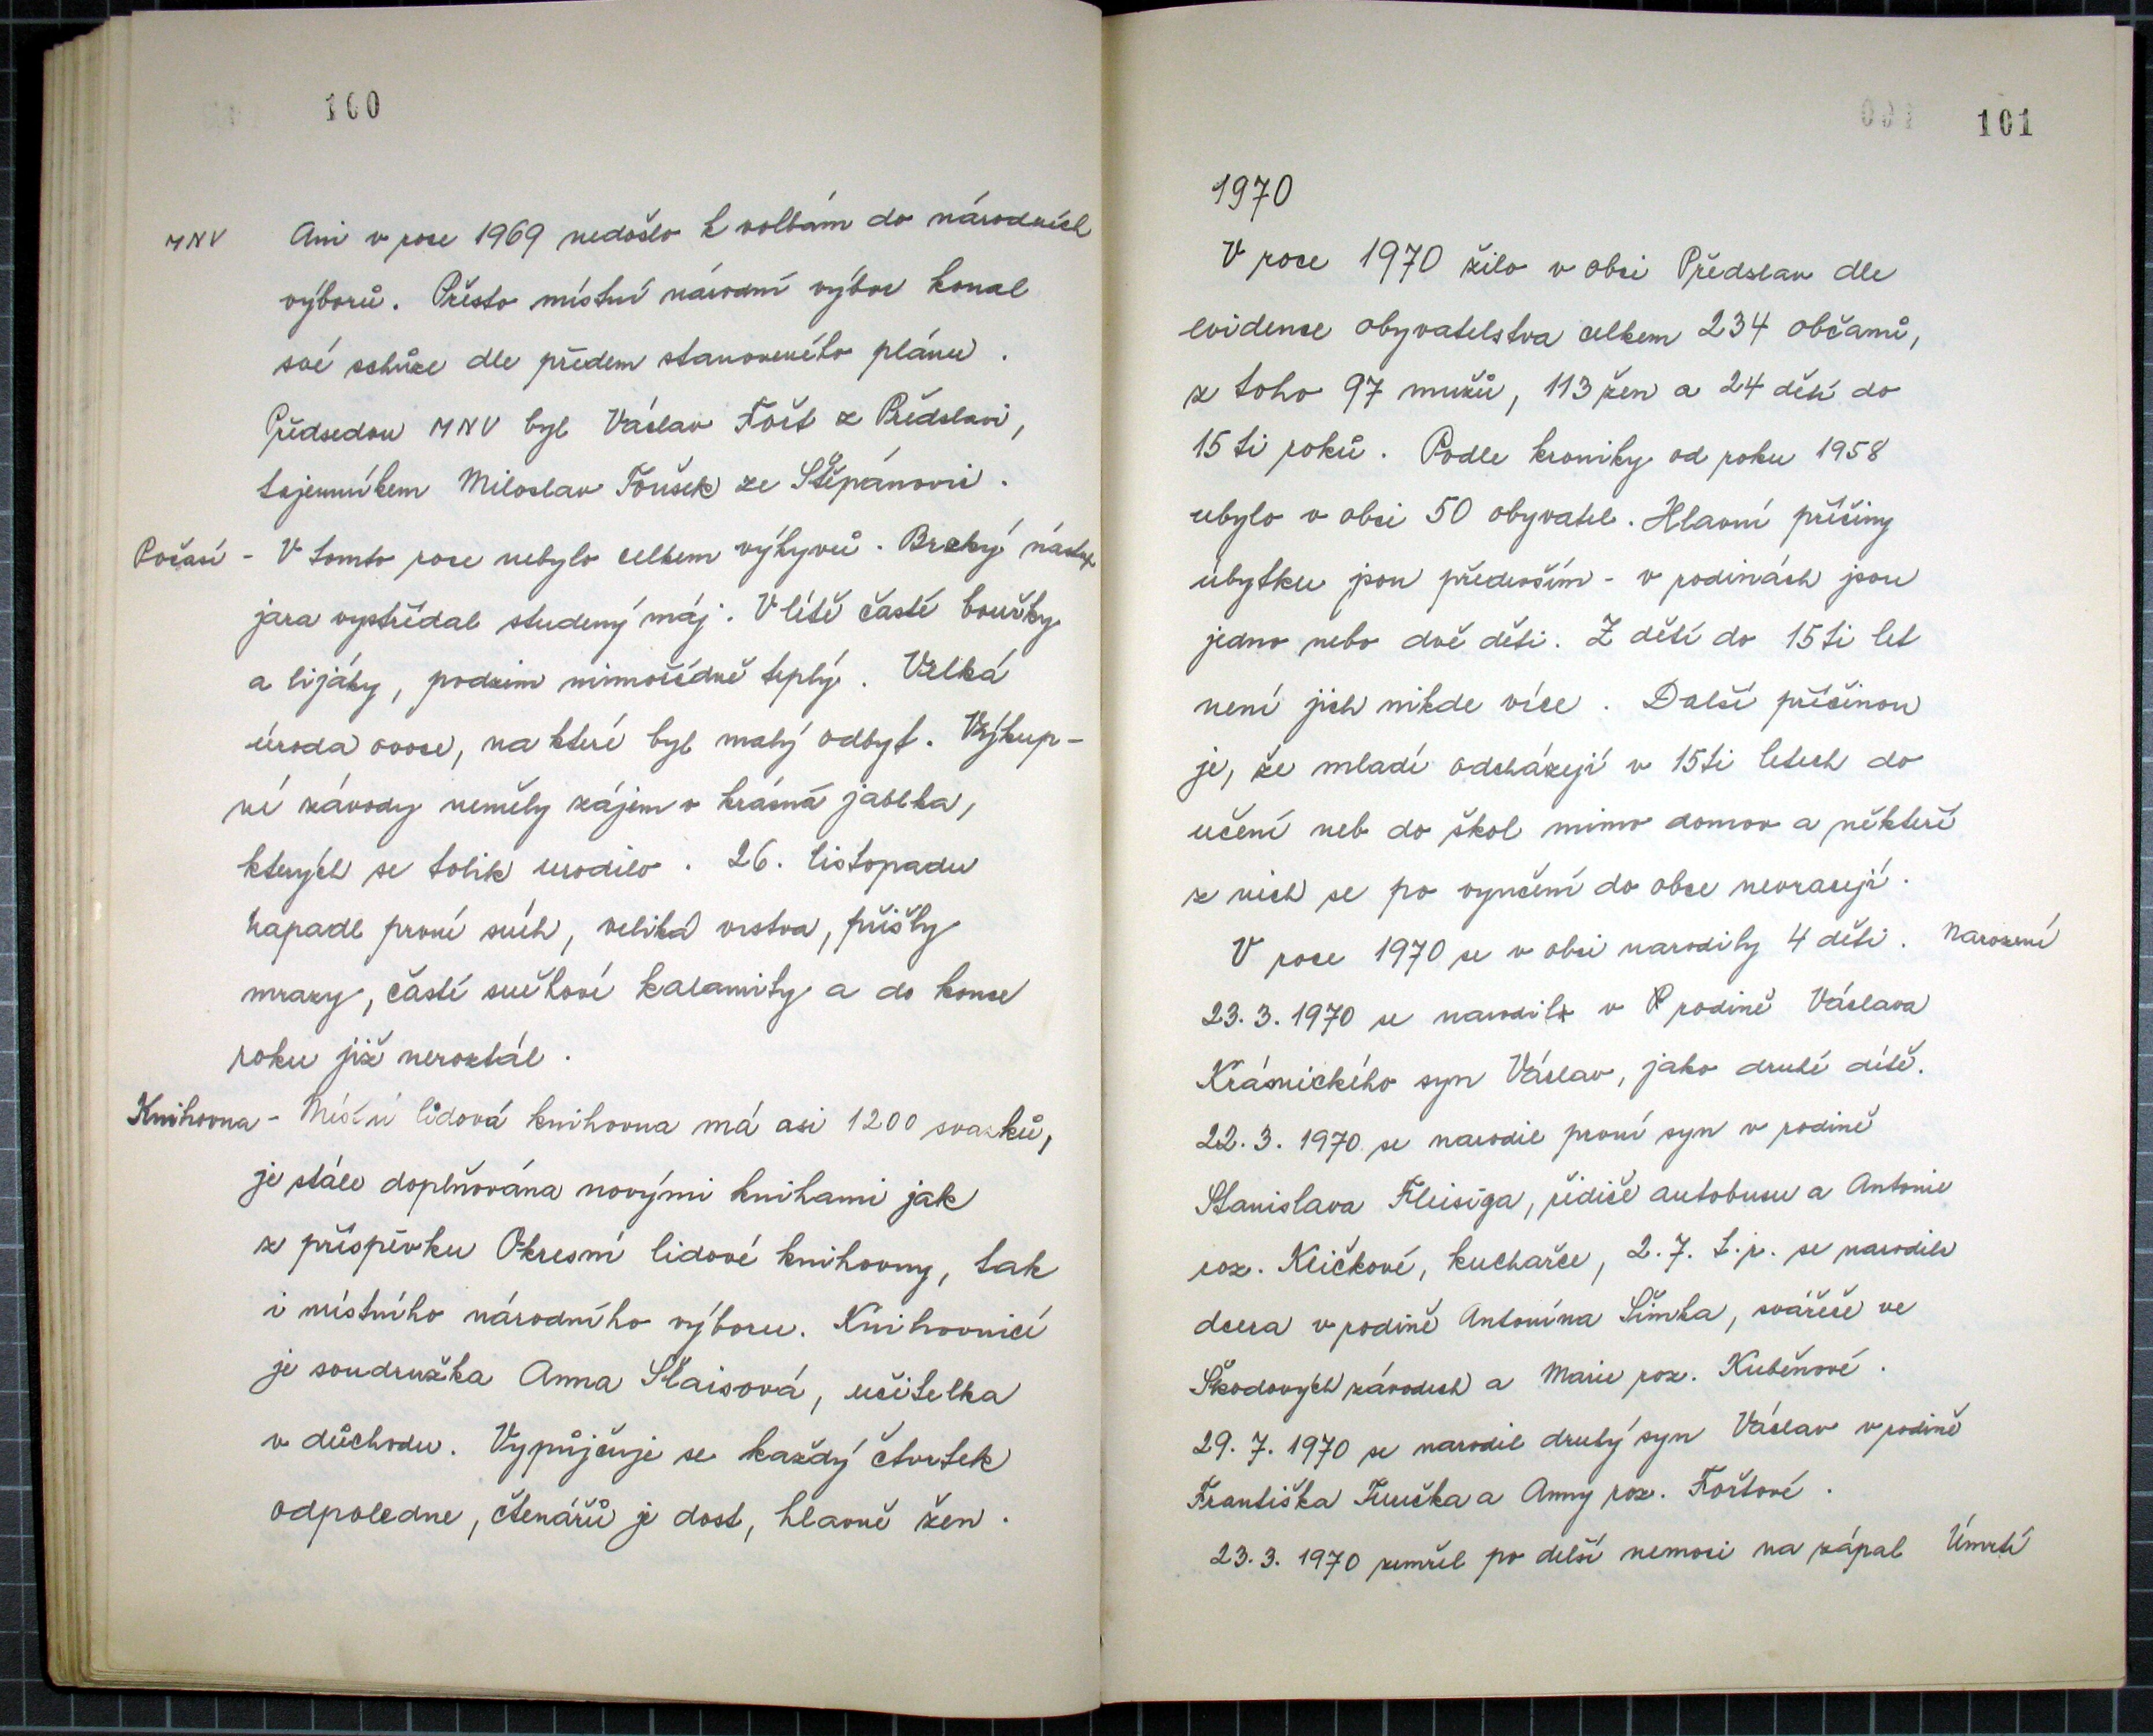 100
MNV Ani v roce 1969 nedošlo k volbám do národních
výborů. Přesto místní národní výbor konal
své schůze dle předem stanoveného plánu.
Předsedou MNV byl Václav Fošt z Předslavi,
tajemníkem Miloslav Toušek ze Štěpánovic.
Počasí - V tomto roce nebylo celkem výkyvů. Brzký nástup
jara vystřídal studený máj. V létě časté bouřky
a lijáky, podzim mimořádně teplý. Velká
úroda ovoce, na které byl malý odbyt. Výkup-
ní závody neměly zájem o krásná jablka,
kterých se tolik urodilo. 26. listopadu
napadl první sníh, veliká vrstva, přišly
mrazy, časté sněhové kalamity a do konce
roku již neroztál.
Knihovna - Místní lidová knihovna má asi 1200 svazků,
je stále doplňována novými knihami jak
z příspěvku Okresní lidové knihovny, tak
i místního národního výboru. Knihovnicí
je soudružka Anna Slaisová, učitelka
v důchodu. Vypůjčuje se každý čtvrtek
odpoledne, čtenářů je dost, hlavně žen.
101
1970
V roce 1970 žilo v obci Předslav dle
evidence obyvatelstva celkem 234 občanů,
z toho 97 mužů, 113 žen a 24 dětí do
15 ti roků. Podle kroniky od roku 1958
ubylo v obci 50 obyvatel. Hlavní příčiny
úbytku jsou především - v rodinách jsou
jedno nebo dvě děti. Z dětí do 15 ti let
není jich nikde více. Další příčinou
je, že mladí odcházejí v 15 ti letech do
učení neb do škol mimo domov a někteří
z nich se po vyučení do obce nevracejí.
V roce 1970 se v obci narodily 4 děti. Narození
23. 3. 1970 se narodil v rodině Václava
Krásnického syn Václav, jako druhé dítě.
22. 3. 1970 se narodil první syn v rodině
Stanislava Fleisiga, řidiče autobusu a Antonie
roz. Kličkové, kuchařce, 2. 7. t. r. se narodila
dcera v rodině Antonína Šimka, svářeče ve
Škodových závodech a Marie roz. Kuběnové.
29. 7. 1970 se narodil druhý syn Václav v rodině
Františka a Anny roz. Foštové.
23. 3. 1970 zemřel po delší nemoci na zápal Úmrtí